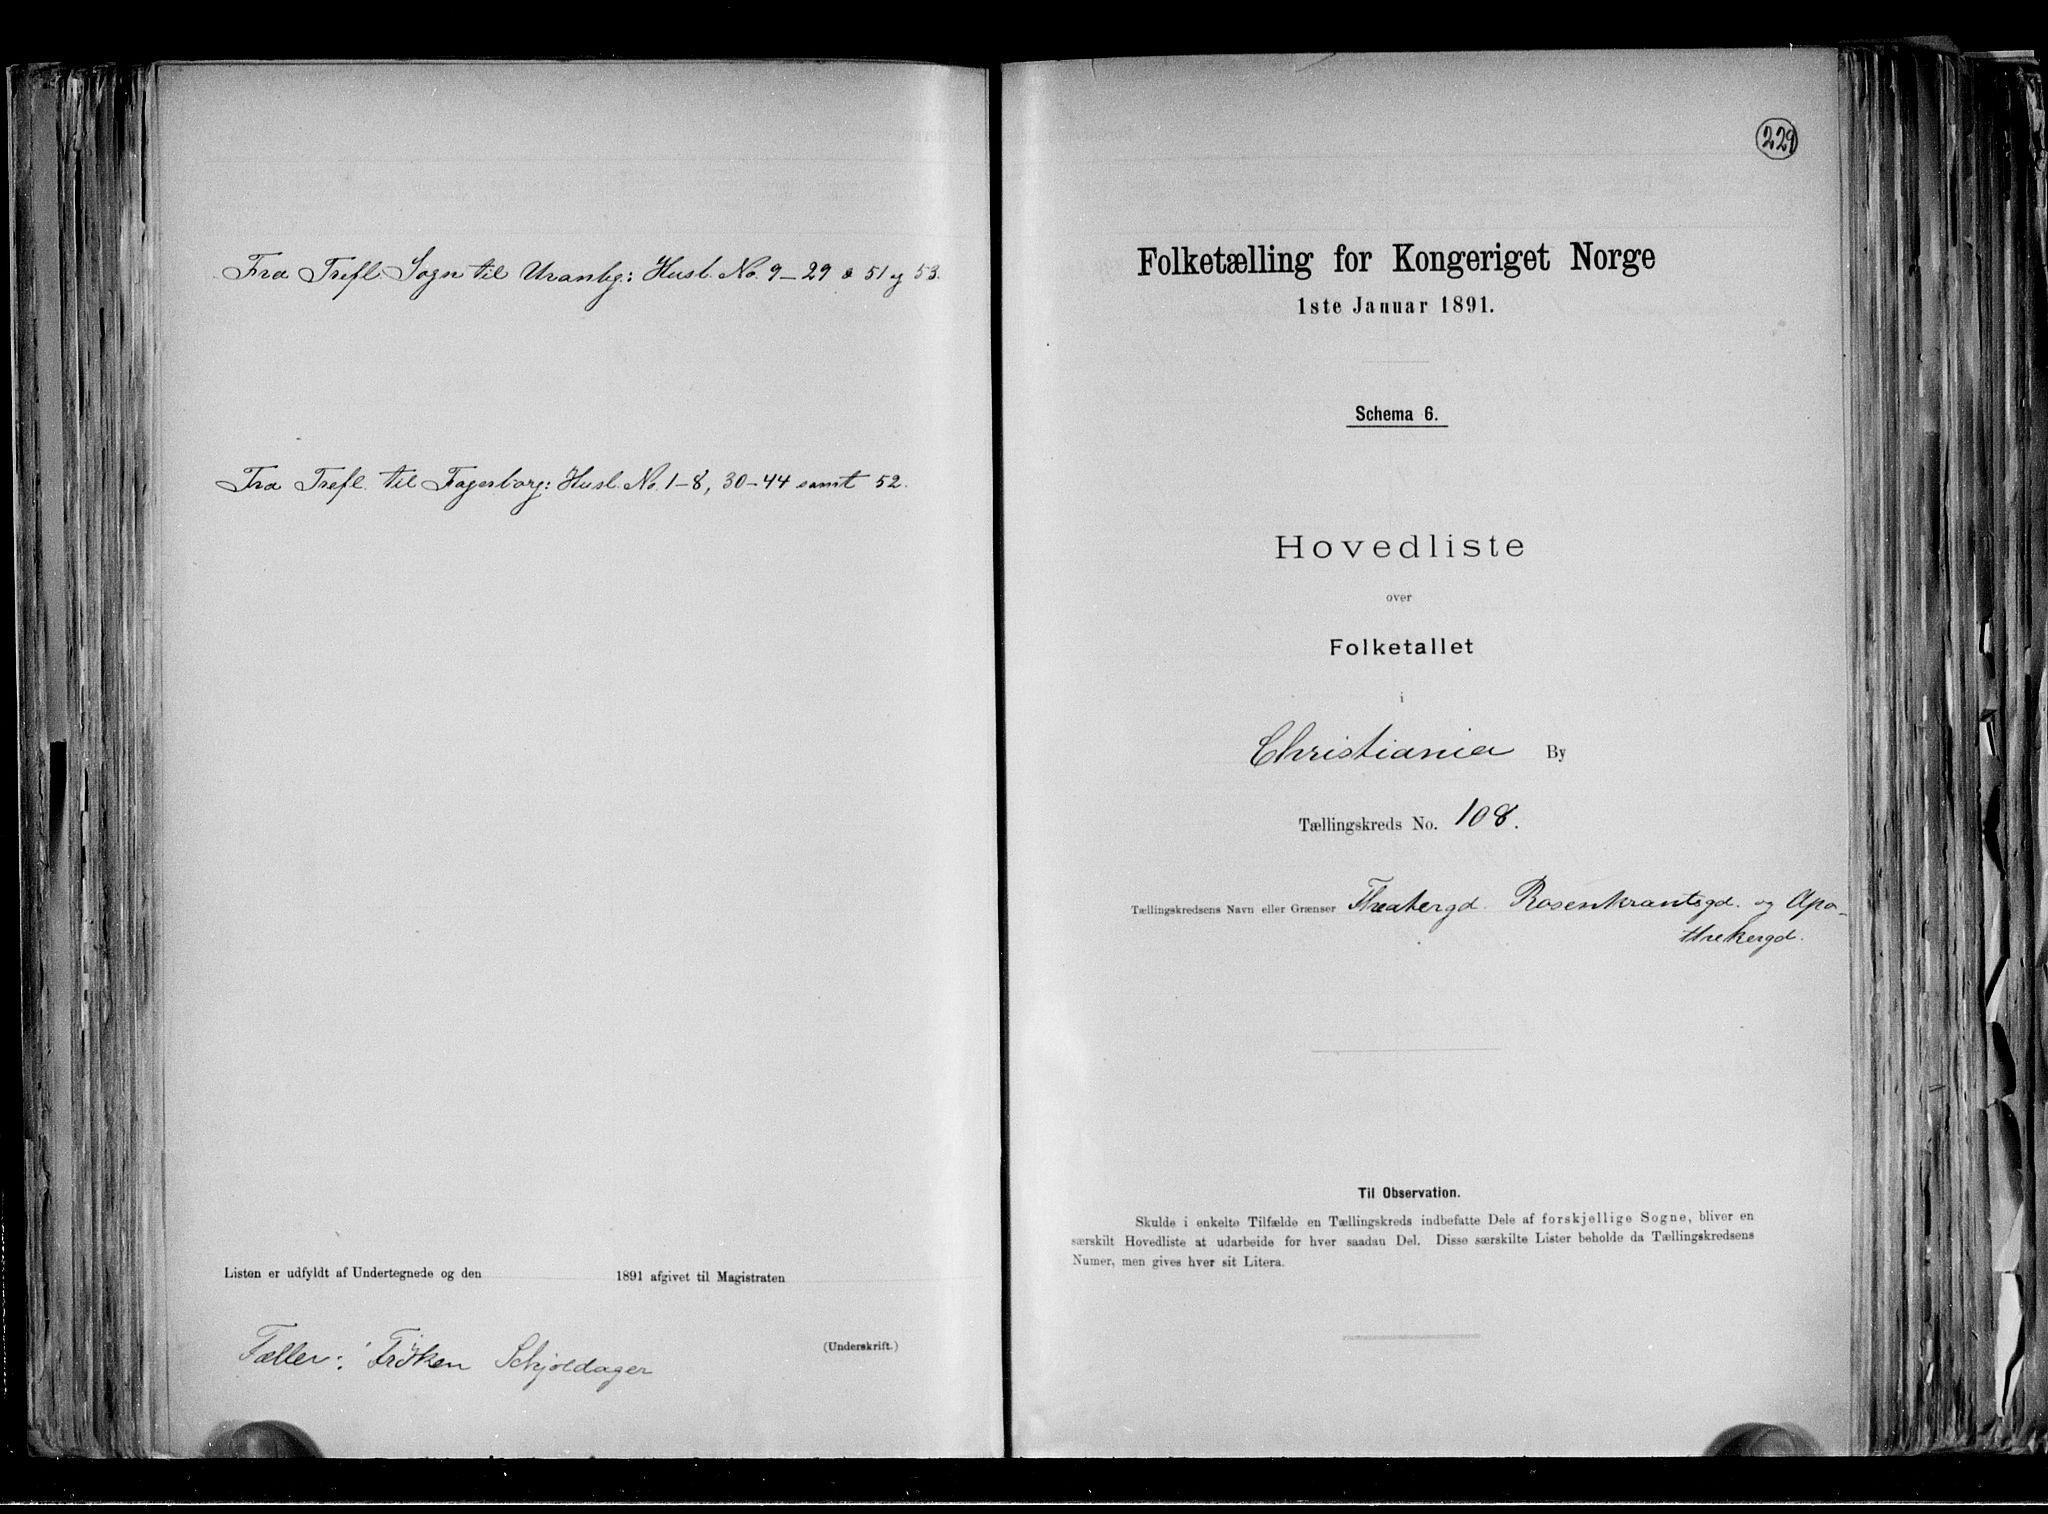 Fra Trefl. Sogn til Uranbg: Husl. No. 9-29 & 51 og 53.
Fra Trefl. til Fagerborg: Husl. No. 1-8, 30-44 samt 52.
Listen er udfyldt af Undertegnede og den 1891 afgivet til Magistraten
(Underskrift.)
Tæller: Frøken Schjoldager
229
Folketælling for Kongeriget Norge
1ste Januar 1891.
Schema 6.
Hovedliste
over
Folketallet
i
Christiania By
Tællingskreds No. 108.
Tællingskredsens Navn eller Grænser Theatergd. Rosenkrantsgd. og Apo-
thekergd.
Til Observation.
Skulde i enkelte Tilfælde en Tællingskreds indbefatte Dele af forskjellige Sogne, bliver en
særskilt Hovedliste at udarbeide for hver saadan Del. Disse særskilte Lister beholde da Tællingskredsens
Numer, men gives hver sit Litera.